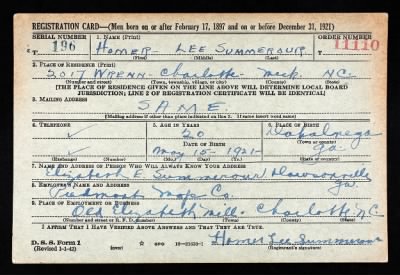 REGISTRATION CARD—(Men born on or after February 17, 1897 and on or before December 31, 1921)
SERIAL NUMBER 1. NAME (Print) ORDER NUMBER
T 196 HOMER LEE SUMMEROUR 11110
(First) (Middle) (Last)
2. PLACE OF RESIDENCE (Print)
2017 WRENN - Charlotte - Meck. NC.
(Number and street) (Town, township, village, or city) (County) (State)
[THE PLACE OF RESIDENCE GIVEN ON THE LINE ABOVE WILL DETERMINE LOCAL BOARD
JURISDICTION; LINE 2 OF REGISTRATION CERTIFICATE WILL BE IDENTICAL]
3. MAILING ADDRESS
SAME.
(Mailing address if other than place indicated on line 2. If same insert word same)
4. TELEPHONE 5. AGE IN YEARS 6. PLACE OF BIRTH
20 Dahlonega
DATE OF BIRTH (Town or county)
May 15 - 1921 - Ga.
(Exchange) (Number) (Mo.) (Day) (Yr.) (State or country)
7. NAME AND ADDRESS OF PERSON WHO WILL ALWAYS KNOW YOUR ADDRESS
Elizabeth E. Summerour Dawsonville Ga.
8. EMPLOYER'S NAME AND ADDRESS
Piedmont Mop Co.
9. PLACE OF EMPLOYMENT OR BUSINESS
Old Elizabeth Mill - Charlotte N.C.
(Number and street or R. F. D. number) (Town) (County) (State)
I AFFIRM THAT I HAVE VERIFIED ABOVE ANSWERS AND THAT THEY ARE TRUE.
D. S. S. Form 1
(Revised 1-1-42) GPO 16—21630-1 Homer Lee Summerour
(Registrant's signature)